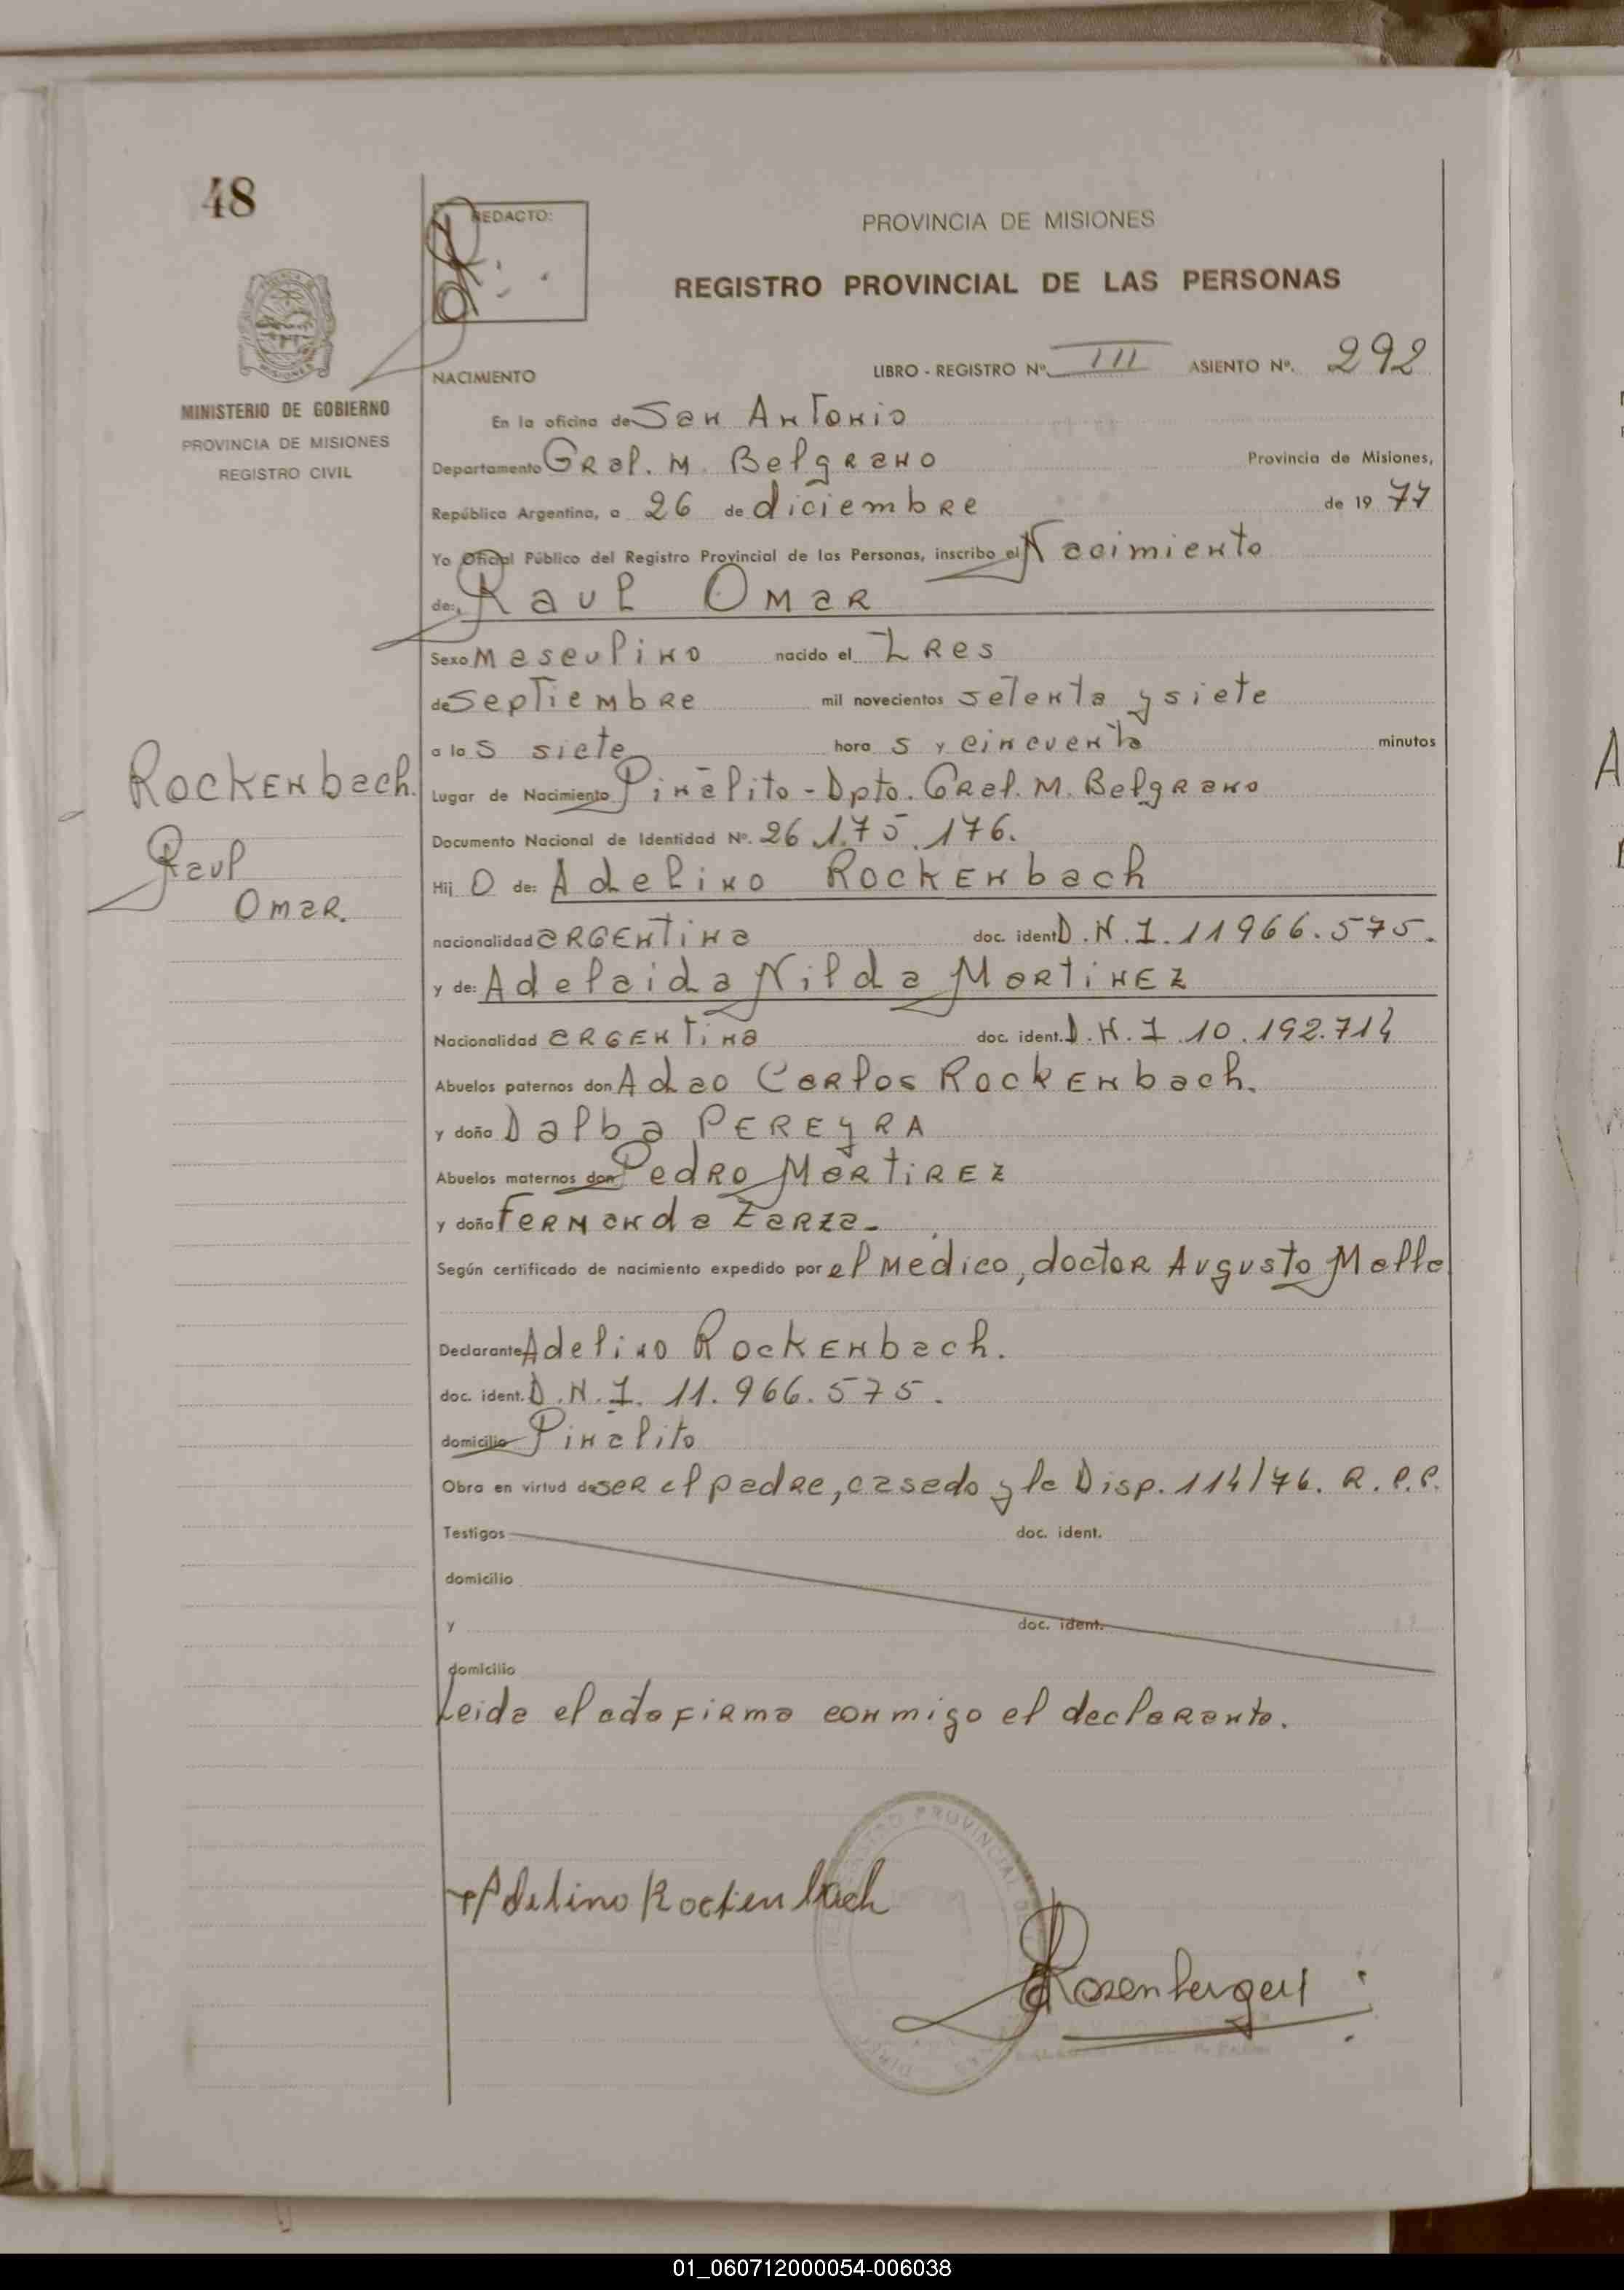 48
REDACTO:
PROVINCIA DE MISIONES
REGISTRO PROVINCIAL DE LAS PERSONAS
MINISTERIO DE GOBIERNO
PROVINCIA DE MISIONES
REGISTRO CIVIL
LIBRO - REGISTRO Nº. III ASIENTO Nº. 292
NACIMIENTO
En la oficina de San Antonio
Departamento Gral. M. Belgrano Provincia de Misiones,
República Argentina, a 26 de diciembre de 19 77
Yo Oficial Público del Registro Provincial de las Personas, inscribo el Nacimiento
de: Raul Omar
Sexo Masculino nacido el Tres
de Septiembre mil novecientos setenta y siete
a las siete horas y cincuenta minutos
Rockenbach.
Raul
Omar.
Lugar de Nacimiento Pinalito - Dpto. Gral. M. Belgrano
Documento Nacional de Identidad Nº. 26.175.176.
Hijo de: Adelino Rockenbach
nacionalidad argentina doc. ident D.N.I. 11966.575.
y de: Adelaida Nilda Martinez
Nacionalidad argentina doc. ident. D.N.I. 10.192.714
Abuelos paternos don Adao Carlos Rockenbach.
y doña Dalba PEREyRA
Abuelos maternos don Pedro Martirez
y doña Fernanda Zarza.
Según certificado de nacimiento expedido por el Medico, doctor Augusto Mello
Declarante Adelino Rockenbach.
doc. ident. D.N.I. 11.966.575.
domicilio Pinalito
Obra en virtud de ser el padre, casado y la Disp. 114/76. R.P.P.
Testigos doc. ident.
domicilio
y doc. ident.
domicilio
Leida el acta firma conmigo el declarante.
Adelino Rockenbach
01_060712000054-006038